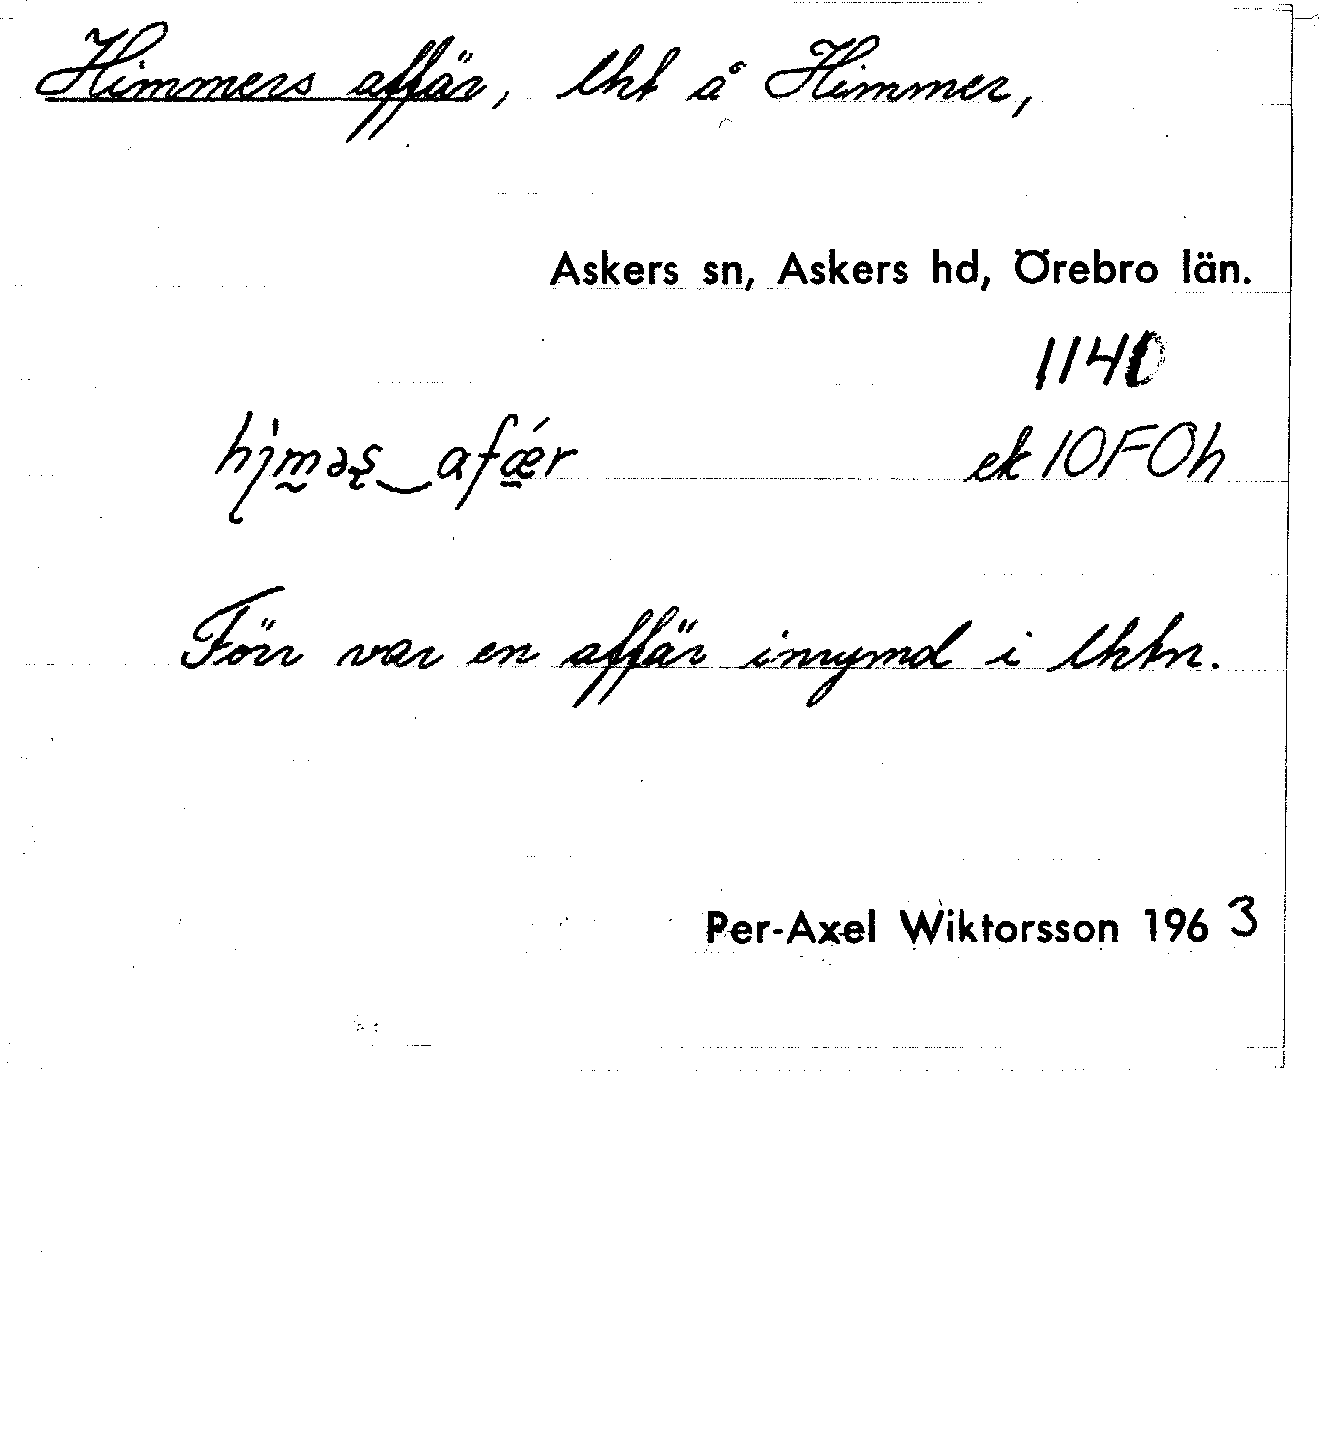 Himmers affär, lht å Himmer,
Askers sn, Askers hd, Örebro län.
1140
ek 10F0h
Förr var en affär inrymd i lhtn.
Per-Axel Wiktorsson 1963